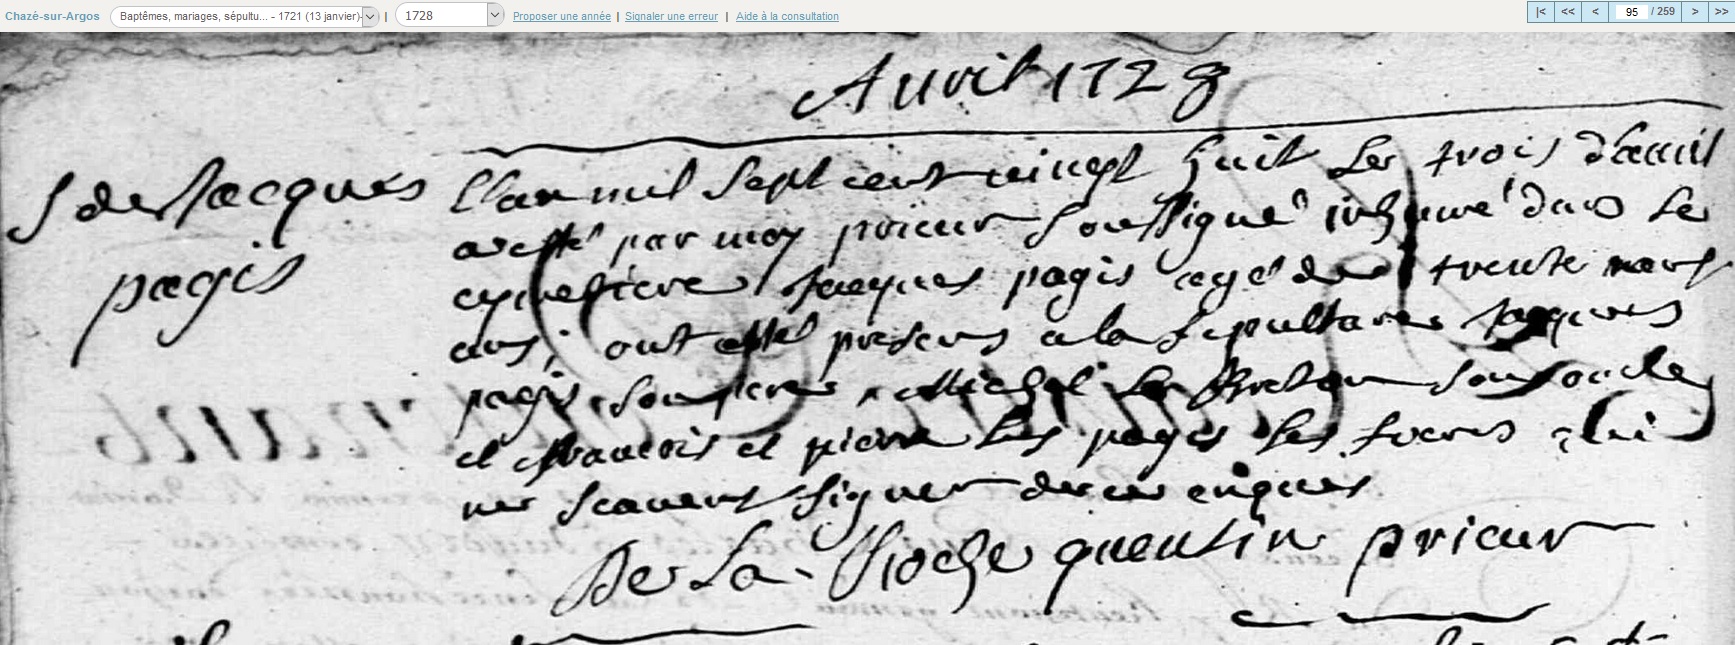 Chazé-sur-Argos Baptêmes, mariages, sépultu... - 1721 (13 janvier)- | 1728 Proposer une année | Signaler une erreur | Aide à la consultation |< << < 95 / 259 > >>
Auvril 1728
S de Jacques
pagis
L'an mil Sept cent vingt huit Le trois d'avuil
a esté par moy prieur Soussigné inhumé dans Le
cymetiere Jacques pagis agé de trente
ans, ont esté presens a la Sepulture Jacques
pagis Son pere, Michel Le Breton Son oncle
et francois et pierre Les pagis Ses freres qui
ne scavent Signer de ce enquis
De La Roche quentin prieur